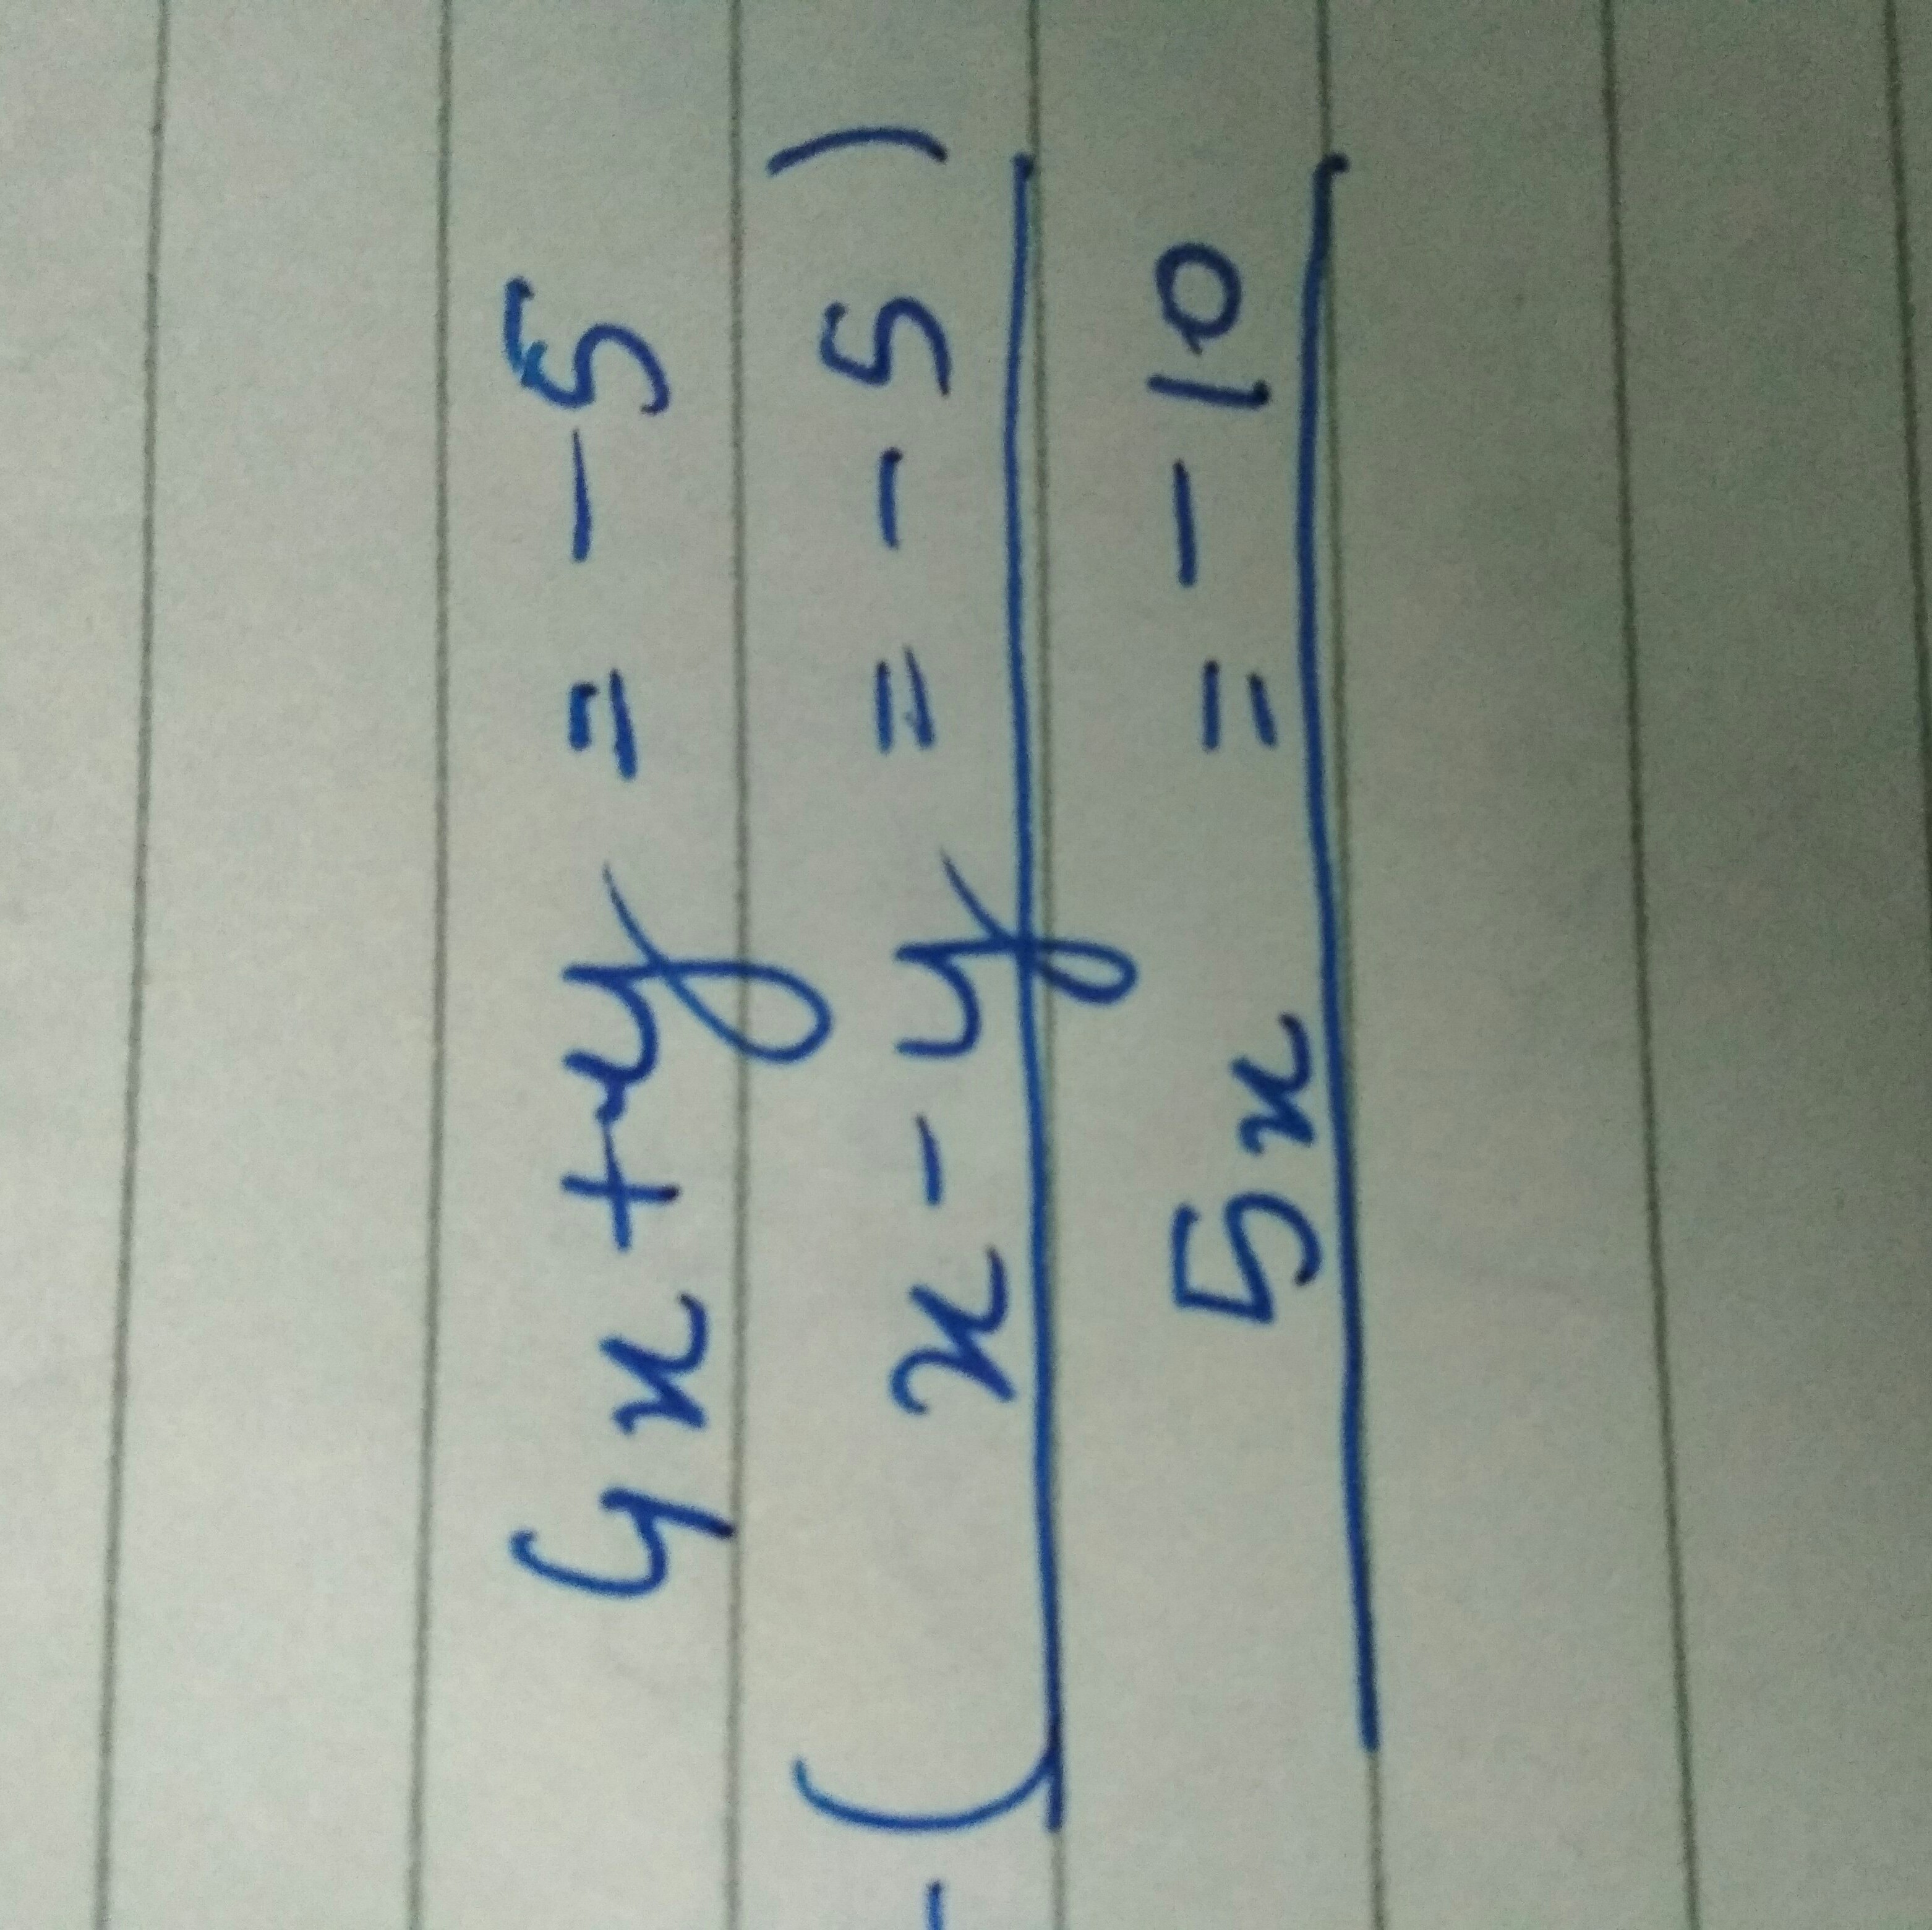 4x + y = -5
- ( x - y = -5 )
5x = -10